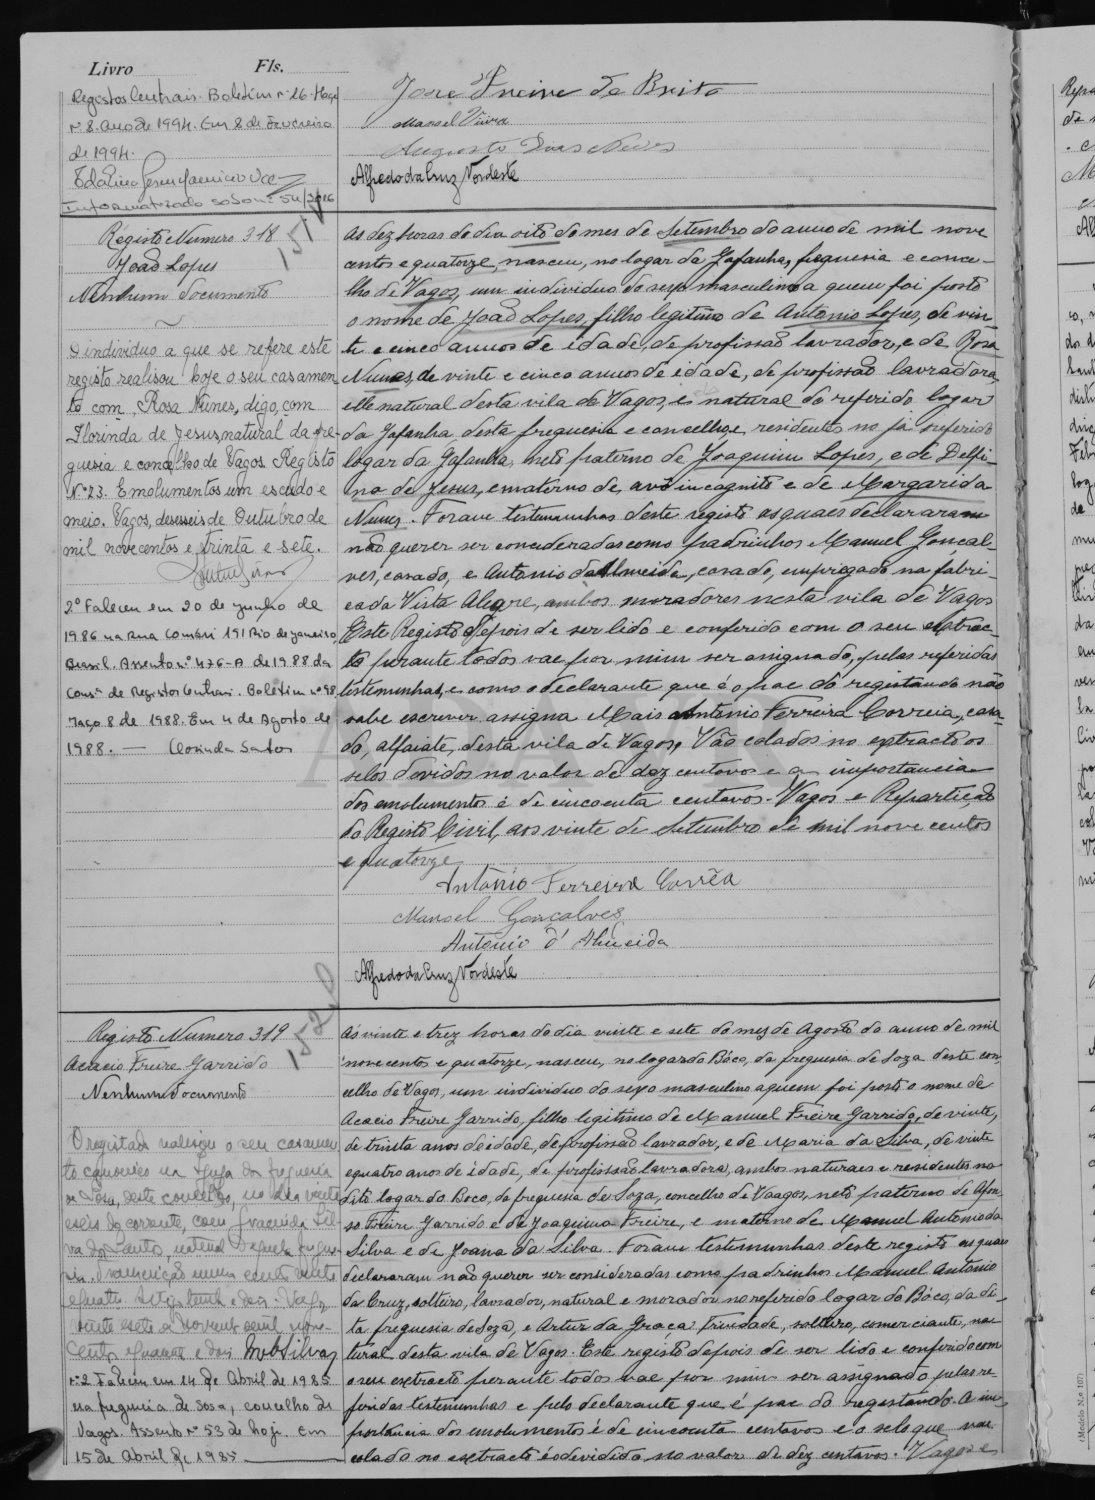 Livro Fls.
Registos Centrais. Boletim nº 26. Maço
nº 8. ano de 1994. Em 8 de Fevereiro
de 1994.
Informatizado sob o nº 54/2016
José Freire de Brito
Manoel Vieira
Augusto Dias Neves
Alfredo da Cruz Nordeste
Registo Numero 318
João Lopes
Nenhum documento
O individuo a que se refere este
registo realisou hoje o seu casamen
to com, Rosa Nunes, digo, com
Florinda de Jesus, natural da fre-
guesia e concelho de Vagos. Registo
Nº 23. Emolumentos um escudo e
meio. Vagos, desesseis de Outubro de
mil novecentos e trinta e sete.
2º Faleceu em 20 de Junho de
1986 na Rua 191 Rio de Janeiro,
Brasil. Assento nº 476-A de 1988 da
Consª de Registos Centrais. Boletim nº 98
Maço 8 de 1988. Em 4 de Agosto de
1988. — Clorinda Santos
Ás dez horas do dia oito do mes de Setembro do anno de mil nove
centos e quatorze, nasceu, no logar da Gafanha, freguesia e conce-
lho de Vagos, um individuo do sexo masculino a quem foi posto
o nome de João Lopes, filho legitimo de Antonio Lopes, de vin-
te e cinco annos de idade, de profissão lavrador, e de Rosa
Nunes, de vinte e cinco annos de idade, de profissão lavradora,
elle natural desta vila de Vagos, e natural do referido logar
da Gafanha, desta freguesia e concelho, e residentes no já referido
logar da Gafanha, neto paterno de Joaquim Lopes, e de Delfi-
na de Jesus, e materno de, avô incognito e de Margarida
Nunes. Foram testemunhas deste registo as quaes declararam
não querer ser consideradas como padrinhos Manuel Gonçal-
ves, casado, e Antonio da Almeida, casado, empregado na fabri-
ca da Vista Alegre, ambos moradores nesta vila de Vagos
Este Registo depois de ser lido e conferido com o seu extrac-
to perante todos vae por mim ser assignado, pelas referidas
testemunhas, e como o declarante que é o pae do registando não
sabe escrever assigna Mais Antonio Ferreira Correia, casa-
do, alfaiate, desta vila de Vagos. Vão colados no extracto os
selos devidos no valor de dez centavos e a importancia
dos emolumentos é de cincoenta centavos. Vagos e Repartição
do Registo Civil, aos vinte de Setembro de mil nove centos
e quatorze
António Ferreira Corrêa
Manoel Gonçalves
António d'Almeida
Alfredo da Cruz Nordeste
Registo Numero 319
Acacio Freire Garrido
Nenhum documento
O registado realisou o seu casamen
to canonico na Igreja da freguesia
de Sosa, deste concelho, no dia vinte
e seis do corrente, com Gracinda Sil-
va dos Santos, natural daquela fregue-
sia. Transcrição numero cento vinte
e quatro
vinte e sete de Novembro de mil nove-
centos quarenta e dois
nº 2 Faleceu em 14 de Abril de 1985
na freguesia de Sosa, concelho de
Vagos. Assento nº 53 de hoje. Em
15 de Abril de 1985
Ás vinte e trez horas do dia vinte e sete do mes de Agosto do anno de mil
novecentos e quatorze, nasceu, no logar do Bôco, da freguesia de Soza deste con-
celho de Vagos, um individuo do sexo masculino a quem foi posto o nome de
Acacio Freire Garrido, filho legitimo de Manuel Freire Garrido, de vinte,
de trinta anos de idade, de profissão lavrador, e de Maria da Silva, de vinte
e quatro anos de idade, de profissão lavradora, ambos naturaes e residentes no
dito logar do Boco, da freguesia de Soza, concelho de Vaagos, neto paterno de Afon-
so Freire Garrido e de Joaquina Freire, e materno de Manuel Antonio da
Silva e de Joana da Silva. Foram testemunhas deste registo as quaes
declararam não querer ser consideradas como padrinhos Manuel Antonio
da Cruz, solteiro, lavrador, natural e morador no referido logar do Bôco, da di-
ta freguesia de Soza, e Artur da Graça Trindade, solteiro, comerciante, na-
tural desta vila de Vagos. Este registo depois de ser lido e conferido com
o seu extracto perante todos vae por mim ser assignado pelas re-
feridas testemunhas e pelo declarante que é pae do registando. A im-
portancia dos emolumentos é de cincoenta centavos e o selo que vae
colado no extracto é o devido no valor de dez centavos. Vagos e
(Modelo N.º 107)